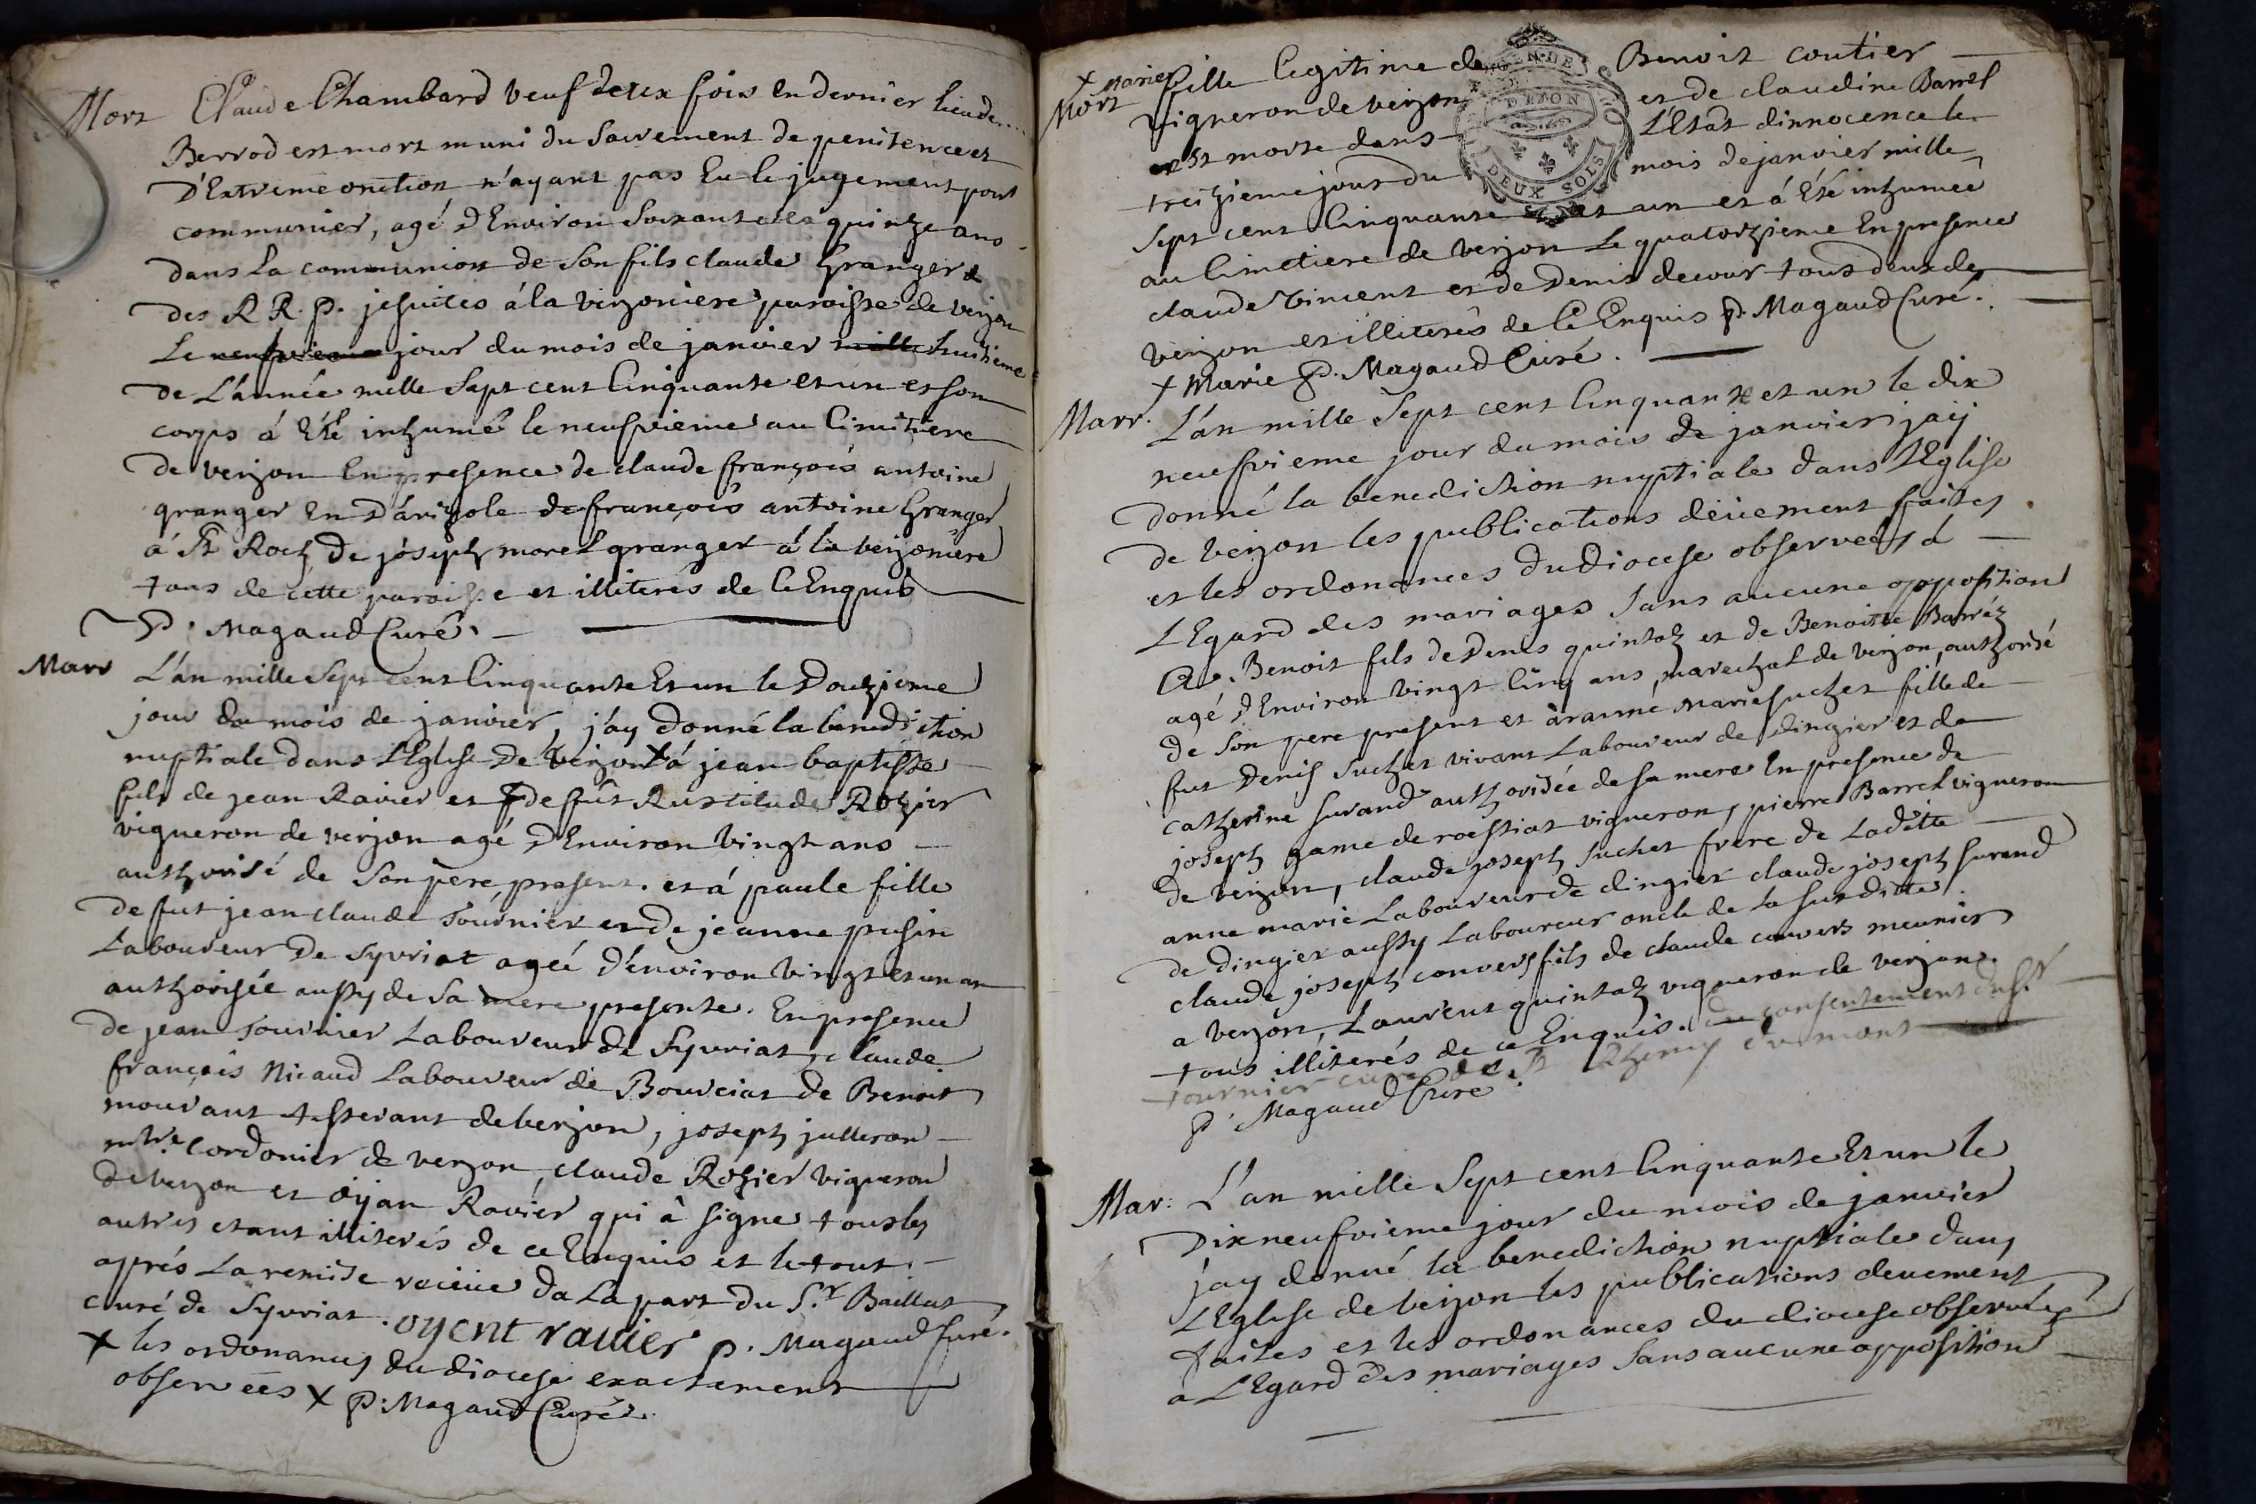 Mort Claude Chambard veuf deux fois en dernier lieu de....
Berrod est mort muni du sacrement de penitence et
d'Extreme onction n'ayant pas Eu le jugement pour
communier, agé d'Environ soixante et quinze ans
dans la communion de son fils claude Granger
des R R. P. jesuites á la verjoniere paroisse de verjon
Le neufvieme jour du mois de janvier mille huitieme
de L'année mille sept cent Cinquante et un et son
corps á Eté inhumé le neufvieme au Cimitiere
de verjon En presence de claude françois antoine
granger En de françois antoine Granger
á St Roch de joseph morel granger á la verjoniere
tous de cette paroisse et illiterés de ce Enquis
P. Magaud Curé.
Marr L'án mille sept cent Cinquante Et un le Douzieme
jour du mois de janvier, j'ay Donné la benediction
nuptiale dans L'Eglise De verjon X á jean baptiste
fils de jean Ravier et de fût Rozier
vigneron de verjon agé d'Environ vingt ans
authorisé de son pere present. et á paule fille
de fut jean claude Tournier et de jeanne pusin
Laboureur De Syvriat ageé d'environ vingt et un an
authorisée aussy de sa mere presente. En presence
de jean Tournier Laboureur de Syvriat, claude
françois Nicaud Laboureur de Bourciat de Benoit
mourant tisserant de verjon, joseph julleron
mtre. Cordonier de verjon, claude Rozier vigneron
de verjon et öyan Ravier qui à signé tous les
autres etant illiterés de ce Enquis et le tout
aprés La remise recüe da La part du S.r Baillat
curé de Syvriat. oyent rauier P. Magaud Curé.
X les ordonances du diocese exactement
observées X P. Magaud Curé.
X Marie
Mort fille legitime de Benoit coutier
vigneron de verjon et de claudine Barrel
est morte dans L'Etat d'innocence le
treizieme jour du mois de janvier mille
sept cent Cinquante et un et á Eté inhumeé
au Cimetiere de verjon Le quatorzieme En presence
claude vincent et de Denis decour tous deux de
verjon et illiterés de Ce Enquis P. Magaud Curé.
X Marie P. Magaud Curé.
GEN. DE DIJON
DEUX SOLS
Marr. L'án mille sept cent Cinquante et un le dix
neufvieme jour du mois de janvier jaÿ
donné la benediction nuptiale dans L'Eglise
de verjon les publications deüement faites
et les ordonances du diocese observeés á
L'Egard des mariages sans aucune opposition
Benoit fils de Denis quintal et de Benoitte Barréz
agé d'Environ vingt cinq ans, marechal de verjon, authorisé
de son pere present et àranné Marie suchet fille de
fut Denis suchet vivant Laboureur de dingier et de
catherine surand authorisée de sa mere En presence de
joseph game de roissiat vigneron, pierre Barrel vigneron
de verjon, claude joseph suchet frere de Ladite
anne marie Laboureur de dingier claude joseph surand
de dingier aussy Laboureur oncle de La susdite,
claude joseph convers fils de claude convers meunier
a verjon, Laurent quintal vigneron de verjon
tous illiterés de ce Enquis. du consentement du Sr
tournier curé de St Remy du mont
P. Magaud Curé.
Mar: L'an mille sept cent Cinquante Et un le
Dix neufvieme jour du mois de janvier
j'ay donné la benediction nuptiale dans
L'Eglise de verjon les publications deuement
faites et les ordonances du diocese observeés
à L'Egard des mariages sans aucune opposition